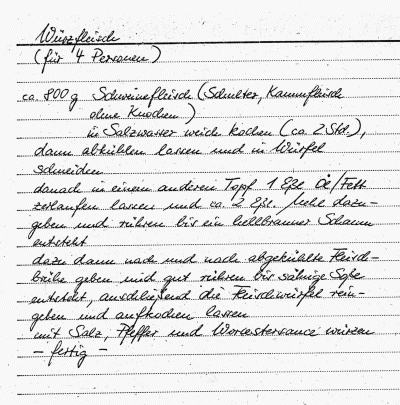 Würzfleisch
(für 4 Personen)
ca. 800 g Schweinefleisch (Schulter, Kammfleisch
ohne Knochen)
in Salzwasser weich kochen (ca. 2 Std.),
dann abkühlen lassen und in Würfel
schneiden
danach in einem anderen Topf 1 Eßl. Öl/Fett
zerlaufen lassen und ca. 2 Eßl. Mehl dazu-
geben und rühren bis ein hellbrauner Schaum
entsteht
dazu dann nach und nach abgekühlte Fleisch-
brühe geben und gut rühren bis sähnige Soße
entsteht, anschließend die Fleischwürfel rein-
geben und aufkochen lassen
mit Salz, Pfeffer und Worcestersauce würzen
- fertig -